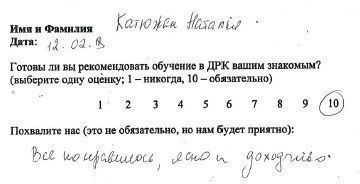 Имя и Фамилия Катюжан Наталья
Дата: 12.02.13
Готовы ли вы рекомендовать обучение в ДРК вашим знакомым?
(выберите одну оценку; 1 – никогда, 10 – обязательно)
1 2 3 4 5 6 7 8 9 10
Похвалите нас (это не обязательно, но нам будет приятно):
Все понравилось, ясно и доходчиво.